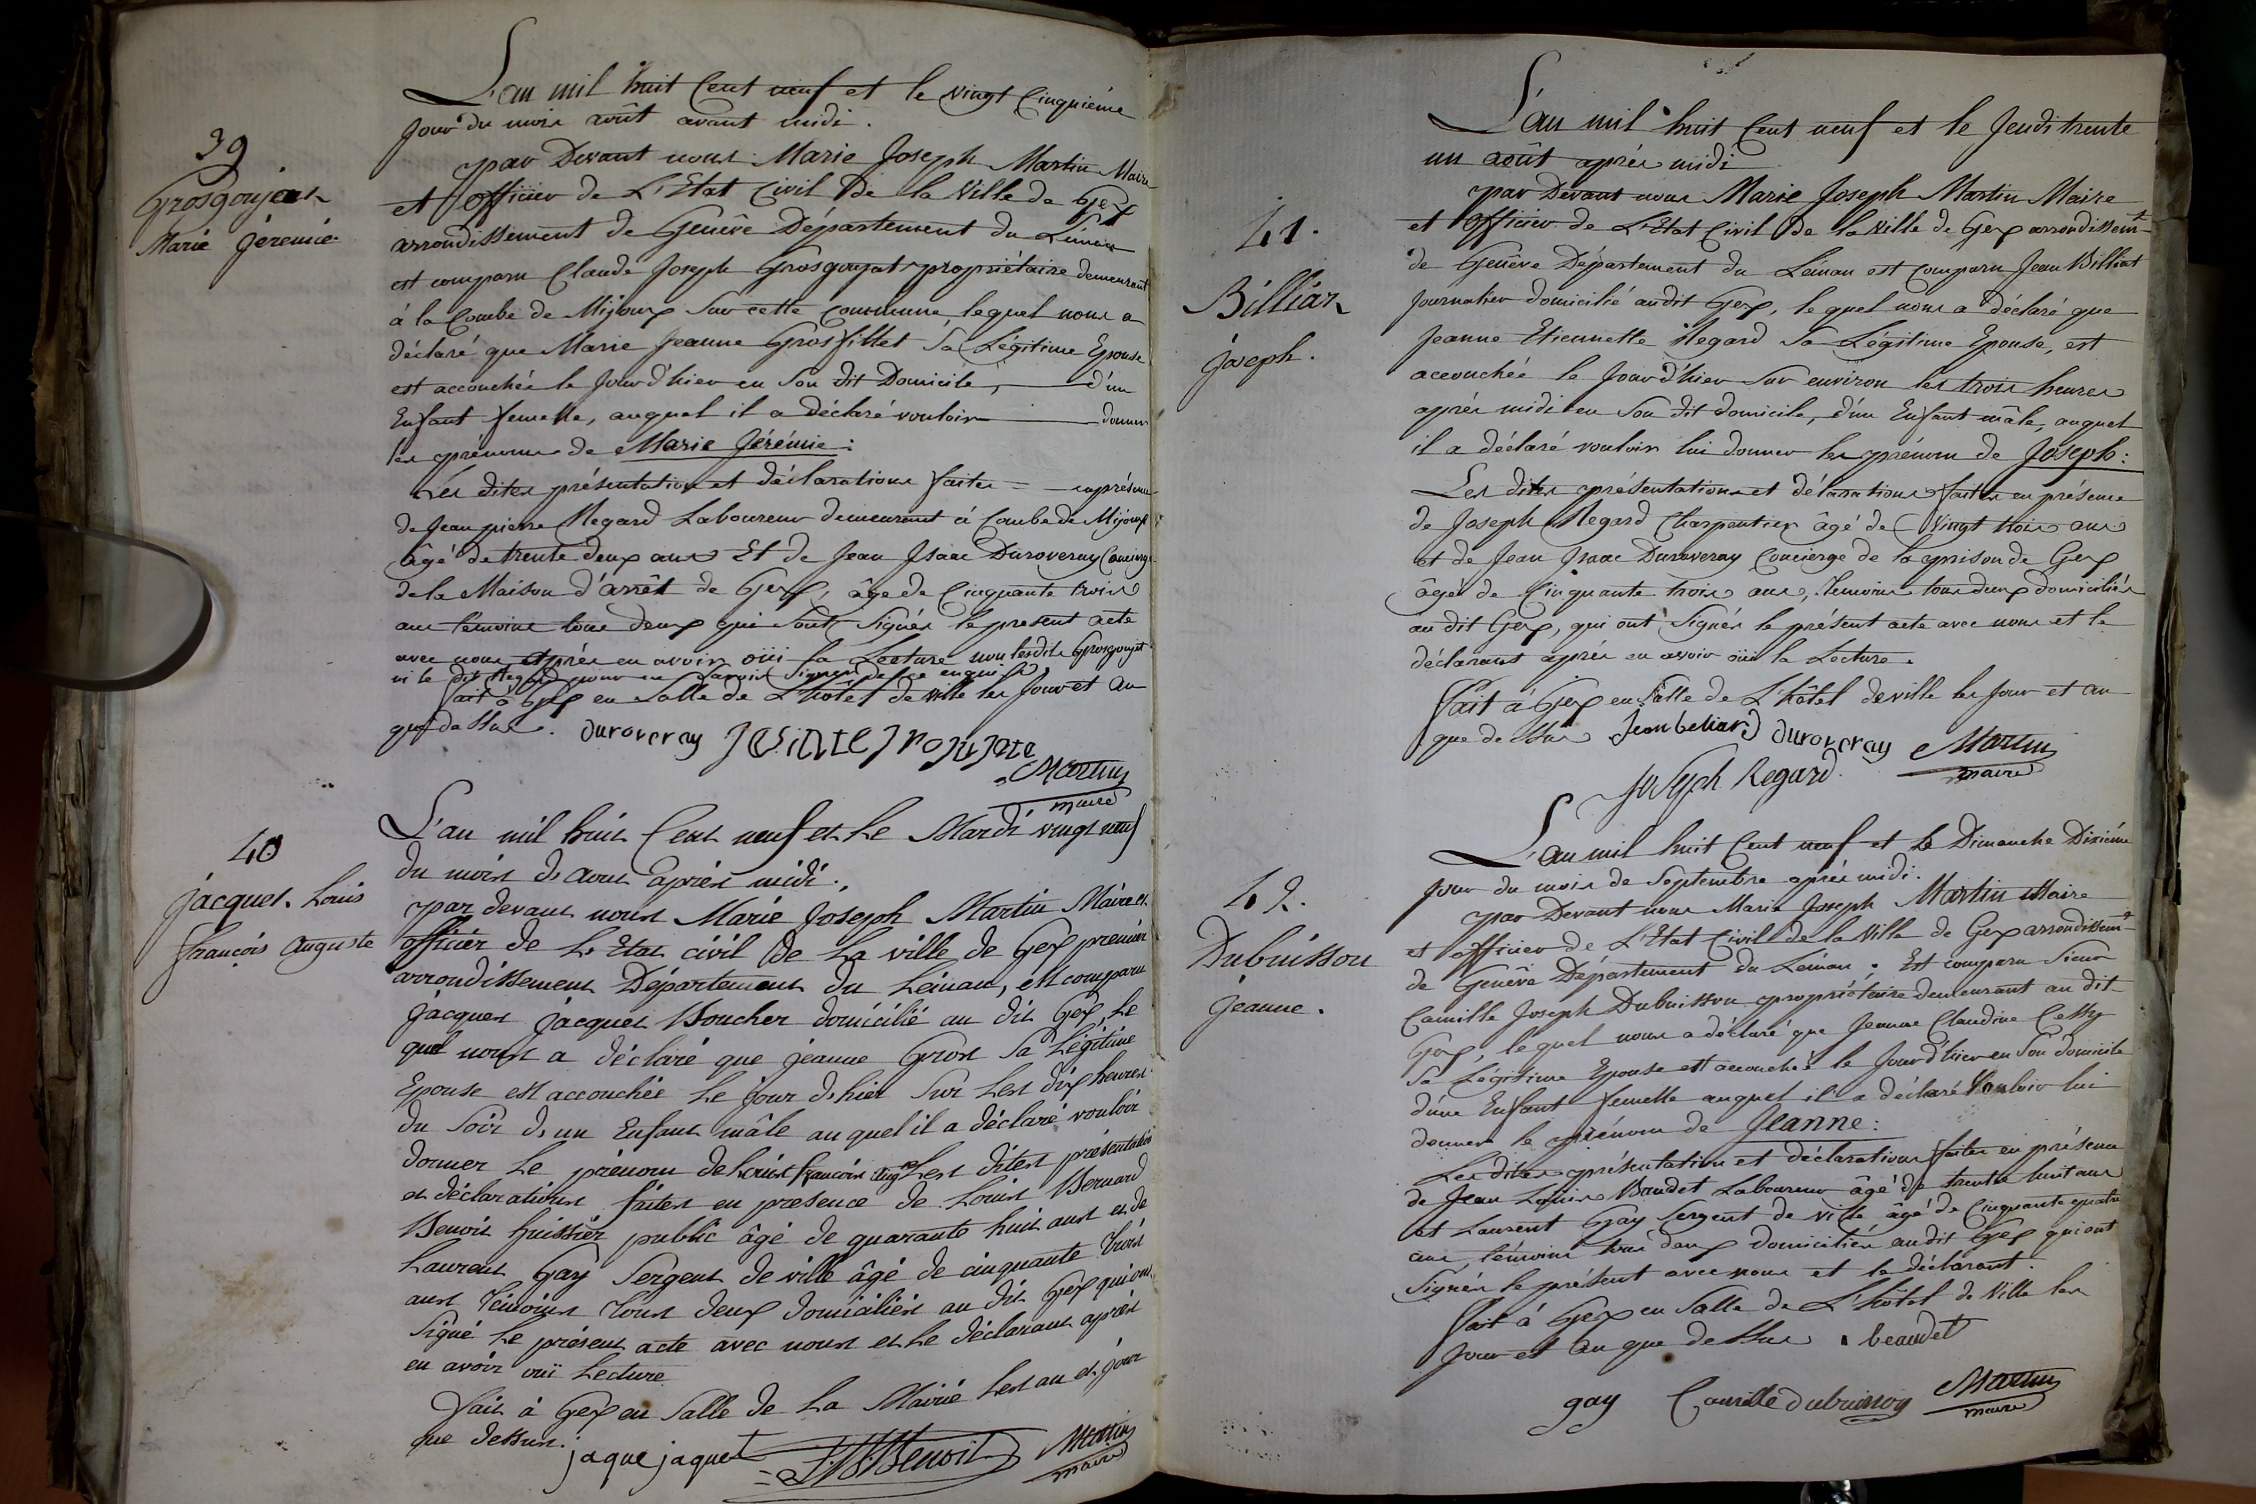 L'an mil huit Cent neuf et le vingt Cinquiéme
Jour du mois août avant midi.
39
Grosgonjeat
Marie Jeremie
par Devant nous Marie Joseph Martin Maire
et officier de L'Etat Civil de la Ville de Gex
arrondissement de Genêve Département du Léman
est comparu Claude Joseph Grosgonjat propriétaire demeurant
à la Combe de Mijoux sur cette commune, lequel nous a
déclaré que Marie Jeanne Grosfillet Sa Légitime Epouse
est accouchée le Jour d'hier en Son dit Domicile, d'un
Enfant femelle, auquel il a déclaré vouloir donner
les prénoms de Marie Jérémie:
Les dites présentation et déclarations faites en présence
de Jean pierre Regard Laboureur demeurant à Combe de Mijoux
âgé de trente deux ans Et de Jean Isaac Duroveray Concierge
de la Maison d'arrêt de Gex, âgé de Cinquante trois
ans témoins tous deux qui sont Signés le present acte
avec nous après en avoir oüi la Lecture non les dits Grosgonjat
ni le dit Regard pour ne Savoir Signer de ce enquis
fait à Gex en Salle de L'hôtel de ville les Jour et an
que dessus. duroveray
Martin
maire
40
Jacquet. Louis
françois Auguste
L'an mil huit Cent neuf et Le Mardi vingt neuf
du mois d'aout après midi.
par devant nous Marie Joseph Martin Maire et
officier de L'Etat civil de La ville de Gex premier
arrondissement Département du Léman, est comparu
Jacques Jacquet Boucher domicilié au dit Gex, Le
quel nous a déclaré que jeanne Gros Sa Légitime
Epouse est accouchée Le jour d'hier Sur Les dix heures
du Soir d'un Enfant mâle auquel il a déclaré vouloir
donner Le prénom de Louis françois Aug.te Les dites présentation
et déclarations faites en presence de Louis Bernard
Benoit huissier public âgé de quarante huit ans et de
Laurent Gay Sergent de ville âgé de cinquante trois
ans témoins tous deux domiciliés au dit Gex qui ont
Signé Le présent acte avec nous et Le déclarant après
en avoir ouï Lecture
fait à Gex en Salle de La Mairie Les an et jour
que dessus. jaque jaquet L.B. Benoit Martin
maire
L'an mil huit Cent neuf et le Jeudi trente
un août après midi
41.
Billiar
joseph.
par Devant nous Marie Joseph Martin Maire
et officier de L'Etat Civil de la Ville de Gex arrondissemt
de Genêve Département du Léman est comparu Jean Billiat
Journalier domicilié audit Gex, lequel nous a déclaré que
Jeanne Etiennette Regard Sa Légitime Epouse, est
accouchée le Jour d'hier Sur environ les trois heures
après midi en Son dit domicile, d'un Enfant mâle, auquel
il a déclaré vouloir lui donner le prénom de Joseph:
Les dites présentation et déclarations faites en présence
de Joseph Regard Charpentier âgé de Vingt trois ans
et de Jean Isaac Duroveray Concierge de la prison de Gex
âgé de Cinquante trois ans, témoins tous deux domiciliés
au dit Gex, qui ont Signés le présent acte avec nous et le
déclarant après en avoir oüi la Lecture.
fait à Gex en Salle de L'hôtel de ville les Jour et an
que dessus Jean beliard duroveray Martin
Joseph Regard. maire
L'an mil huit Cent neuf et le Dimanche Dixiéme
Jour du mois de Septembre après midi.
42.
Dubuisson
jeanne.
par Devant nous Marie Joseph Martin Maire
et officier de L'Etat Civil de la Ville de Gex arrondissemt
de Genêve Département du Léman; Est comparu Sieur
Camille Joseph Dubuisson propriétaire demeurant au dit
Gex, lequel nous a déclaré que Jeanne Claudine Cessy
Sa Légitime Epouse est accouchée le Jour d'hier en Son domicile
d'une Enfant femelle auquel il a déclaré Vouloir lui
donner le prénom de Jeanne:
Les dites présentation et déclarations faites en présence
de Jean Louis Baudet Laboureur âgé de trente huit ans
et Laurent Gay Sergent de ville âgé de Cinquante quatre
ans, témoins tous deux domiciliés au dit Gex qui ont
Signés le présent avec nous et le déclarant.
fait à Gex en Salle de L'hôtel de Ville les
Jour et an que dessus. beaudet
gay Camille dubuisson Martin
maire